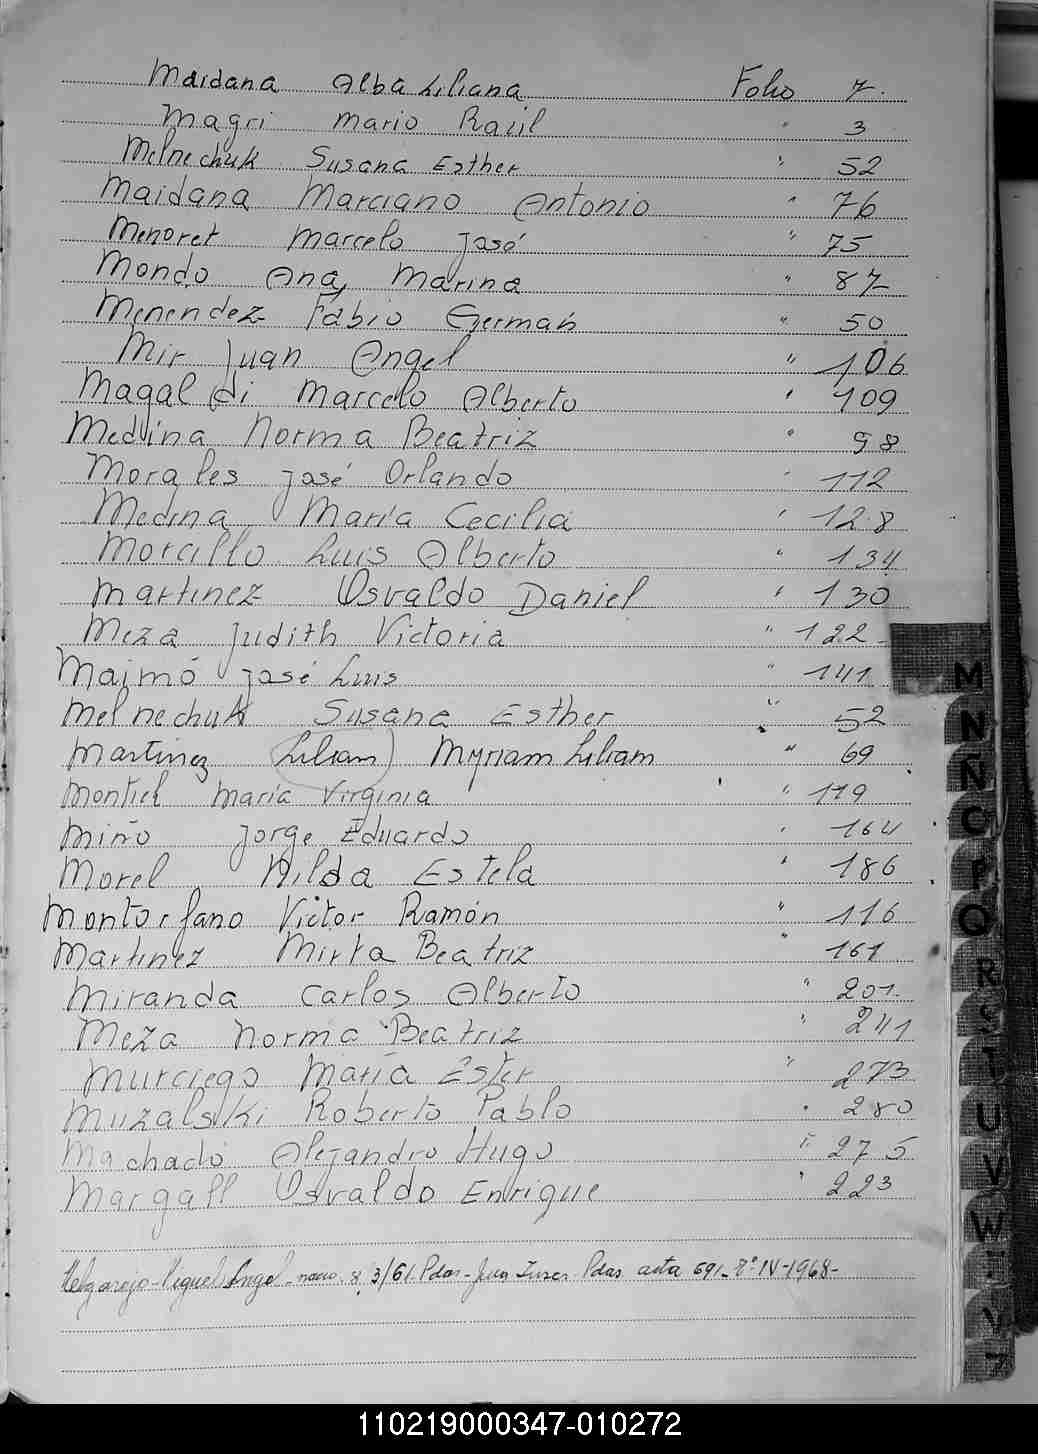 Maidana Alba Liliana Folio 7
Magri Mario Raúl " 3
Melnechuk Susana Esther " 52
Maidana Marciano Antonio " 76
Menoret Marcelo José " 75
Mondo Ana Marina " 87
Menendez Fabio German " 50
Mir Juan Angel " 106
Magaldi Marcelo Alberto " 109
Medina Norma Beatriz " 98
Morales José Orlando " 112
Medina María Cecilia " 128
Morcillo Luis Alberto " 134
Martinez Osvaldo Daniel " 130
Meza Judith Victoria " 122
Maimó José Luis " 141
Melnechuk Susana Esther " 52
Martinez (Lilian) Myriam Liliam " 69
Montiel María Virginia " 119
Miño Jorge Eduardo " 164
Morel Hilda Estela " 186
Montorfano Victor Ramón " 116
Martinez Mirta Beatriz " 161
Miranda Carlos Alberto " 201
Meza Norma Beatriz " 241
Murciego María Ester " 273
Muzalski Roberto Pablo " 280
Machado Alejandro Hugo " 275
Margall Osvaldo Enrique " 223
Melgarejo - Miguel Angel - 3/61 Pdas - Pdas acta 691 - Tº IV - 1968 -
M
N
Ñ
O
P
Q
R
S
T
U
V
W
Y
Z
110219000347-010272